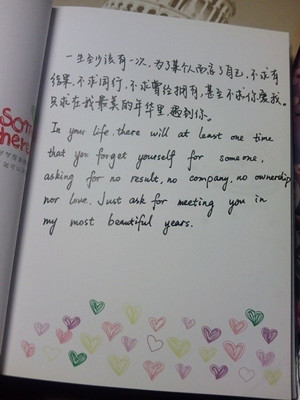 一生至少该有一次，为了某个人而忘了自己，不求有
结果，不求同行，不求曾经拥有，甚至不求你爱我。
只求在我最美的年华里，遇到你。
In your life, there will at least one time
that you forget yourself for someone,
asking for no result, no company, no ownership
nor love. Just ask for meeting you in
my most beautiful years.
Som
here